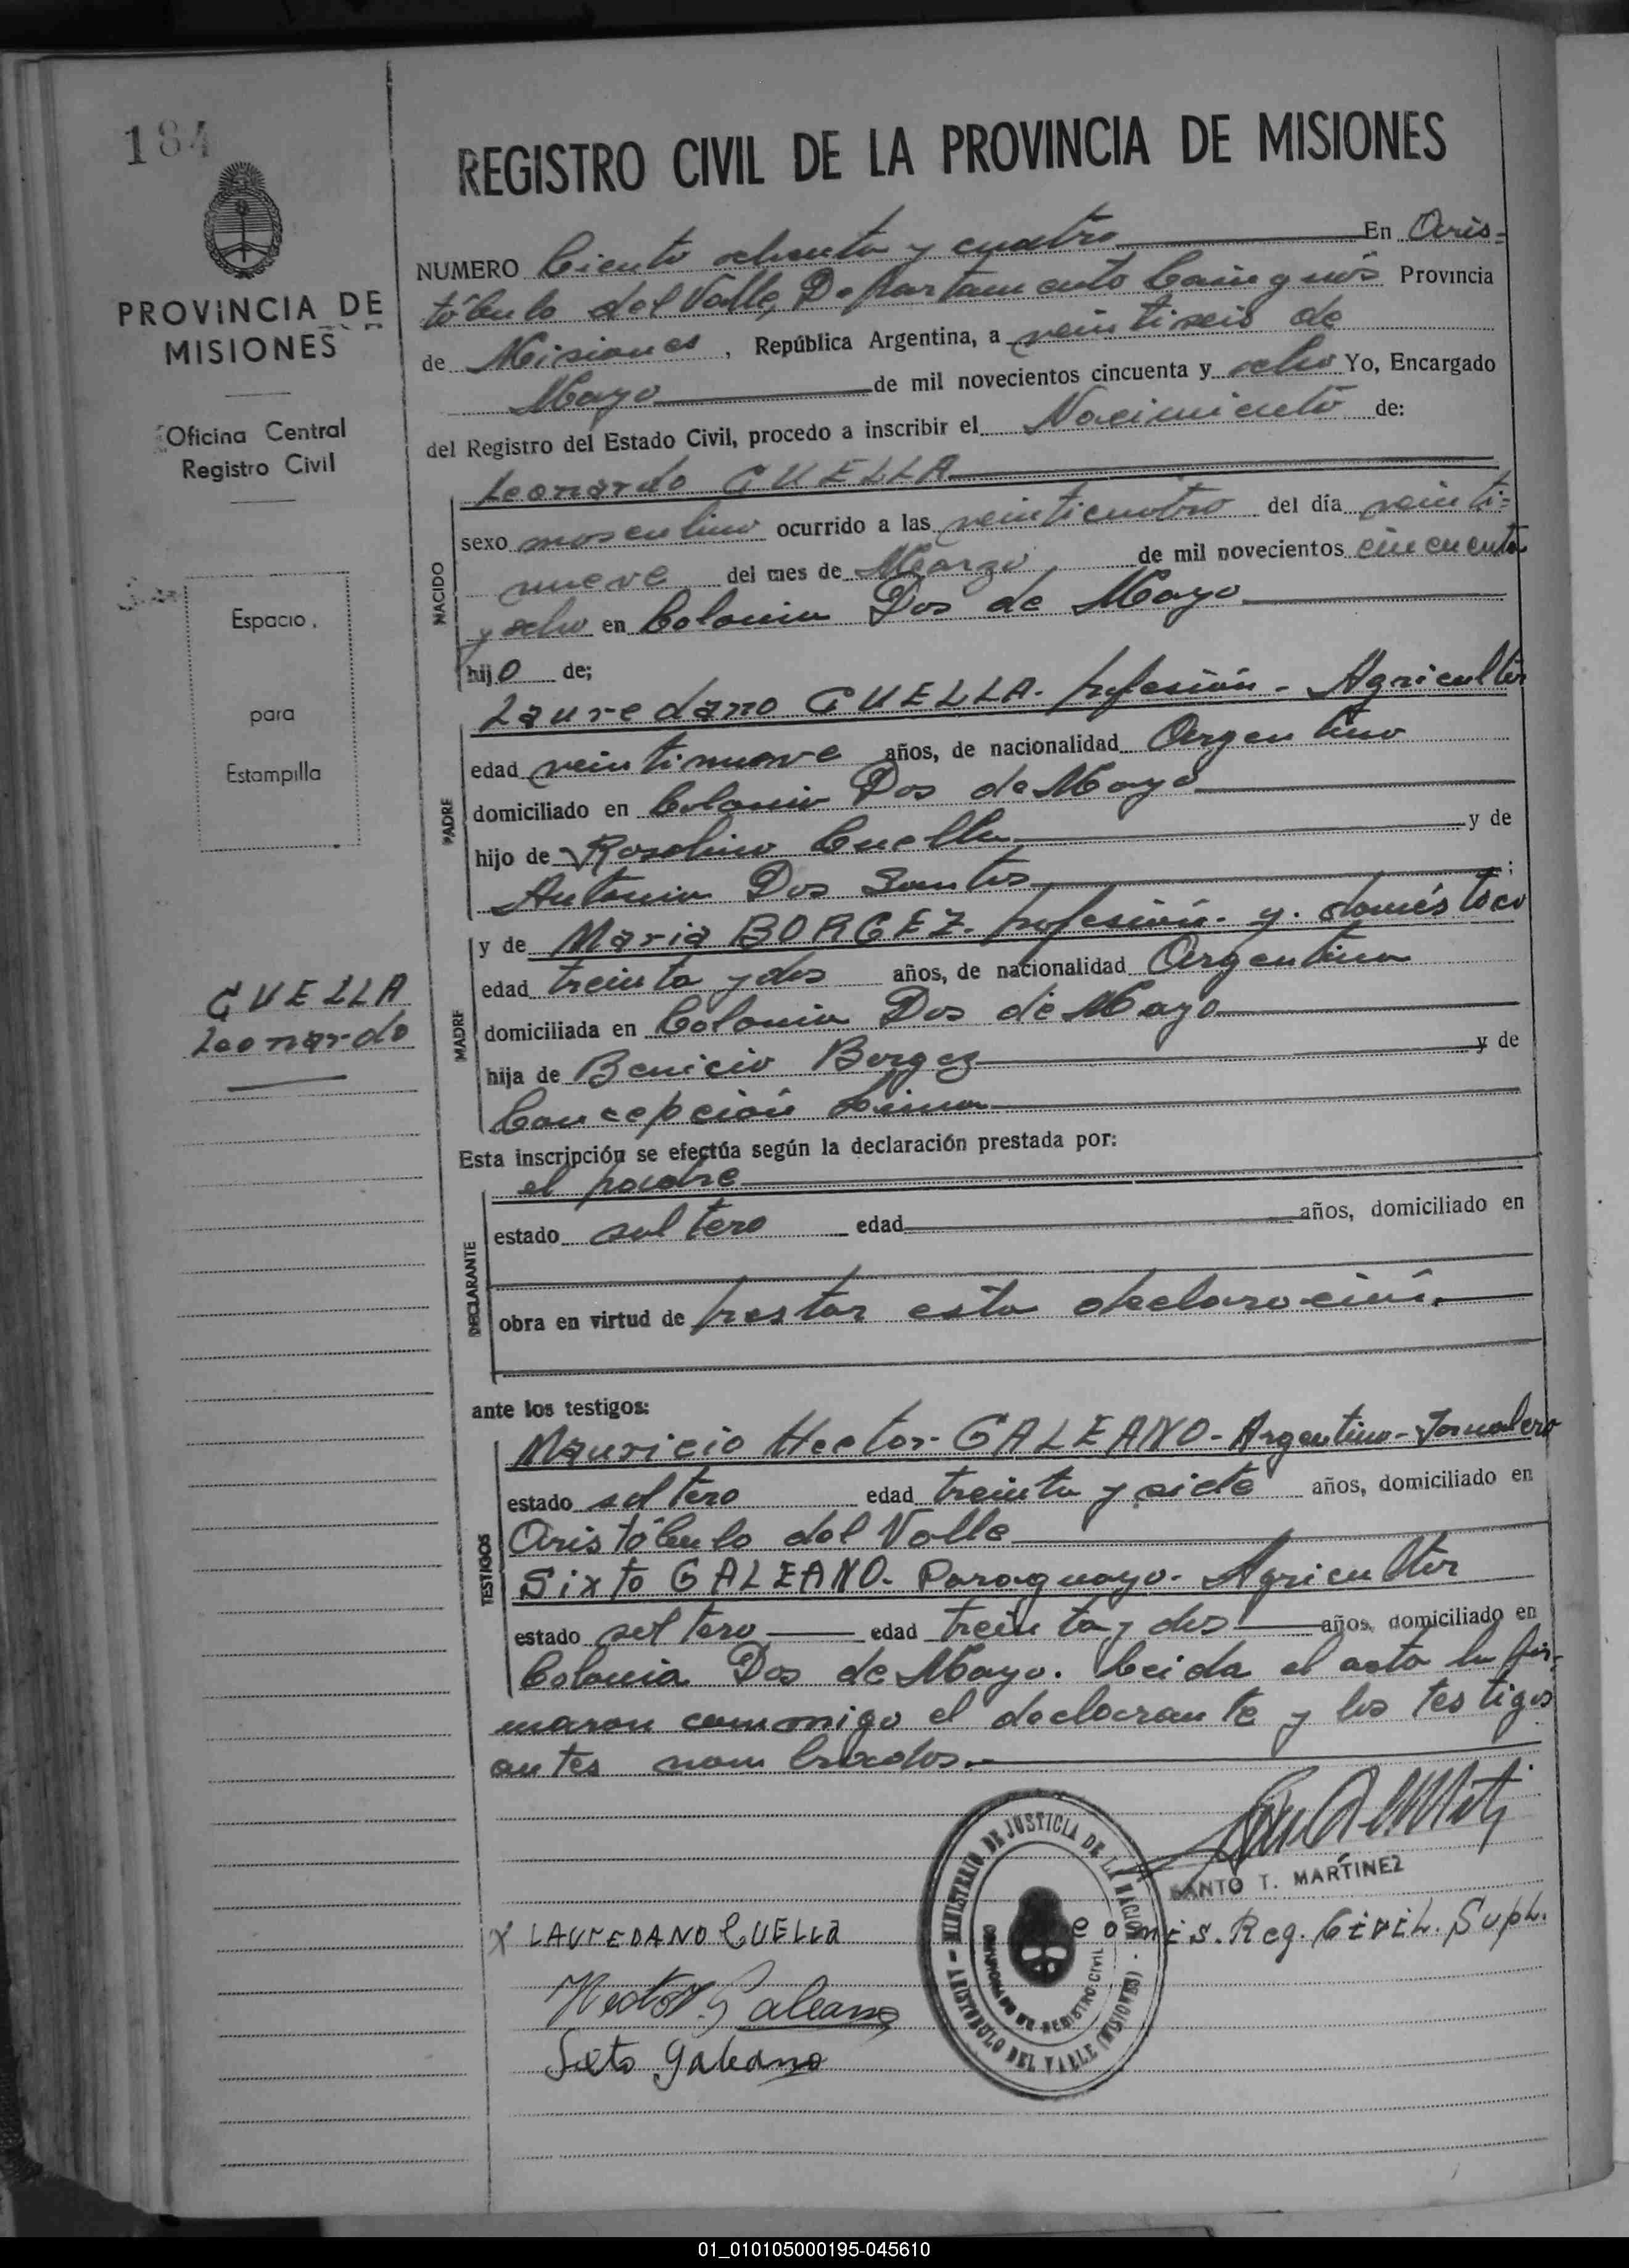 184
PROVINCIA DE
MISIONES
Oficina Central
Registro Civil
Espacio
para
Estampilla
CUELLA
Leonardo
REGISTRO CIVIL DE LA PROVINCIA DE MISIONES
NUMERO Ciento ochenta y cuatro En Aris-
tóbulo del Valle, Departamento Cainguás Provincia
de Misiones, República Argentina, a veintiseis de
Mayo de mil novecientos cincuenta y ocho Yo, Encargado
del Registro del Estado Civil, procedo a inscribir el Nacimiento de:
NACIDO
Leonardo CUELLA
sexo masculino ocurrido a las veinticuatro del día veinti-
nueve del mes de Marzo de mil novecientos cincuenta
y ocho en Colonia Dos de Mayo
hijo de;
PADRE
Lauredano CUELLA. profesión - Agricultor
edad veintinueve años, de nacionalidad Argentino
domiciliado en Colonia Dos de Mayo
hijo de Rosalino Cuella y de
Antonia Dos Santos
MADRE
y de Maria BORGEZ. profesión. q. doméstico
edad treinta y dos años, de nacionalidad Argentina
domiciliada en Colonia Dos de Mayo
hija de Benicio Borgez y de
Concepción Lima
Esta inscripción se efectúa según la declaración prestada por:
DECLARANTE
el padre
estado soltero edad años, domiciliado en
obra en virtud de prestar esta declaración.
ante los testigos:
TESTIGOS
Mauricio Hector GALEANO - Argentino - Jornalero
estado soltero edad treinta y siete años, domiciliado en
Aristóbulo del Valle
Sixto GALEANO. Paraguayo. Agricultor
estado soltero edad treinta y dos años, domiciliado en
Colonia Dos de Mayo. Leida el acta la fir-
maron conmigo el declarante y los testigos
antes nombrados.-
MINISTERIO DE JUSTICIA DE LA NACION
REGISTRO CIVIL
ARISTOBULO DEL VALLE (MISIONES)
SANTO T. MARTINEZ
Comis. Reg. Civil. Supl.
X LAUREDANO CUELLA
Hector Galeano
Sixto Galeano
01_010105000195-045610